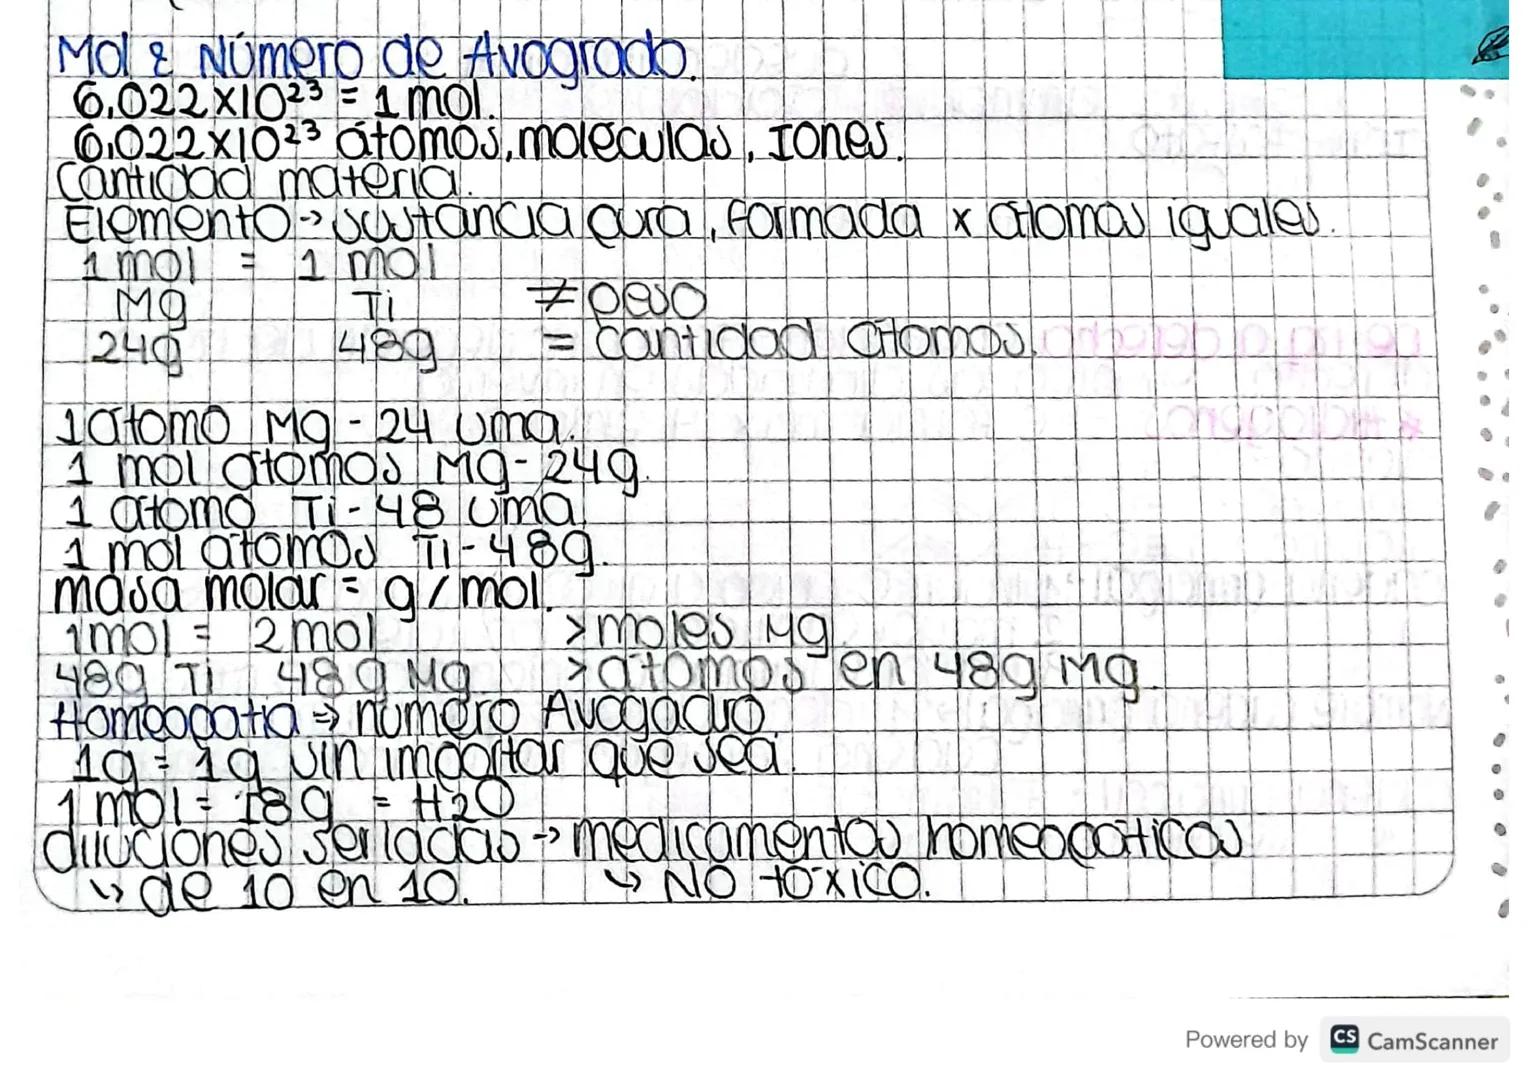 Mol & Número de Avogrado.
6,022x10²³ = 1 mol.
6,022x10²³ átomos, moleculas, Iones.
Cantidad materia.
Elemento → sustancia pura, formada x átomos iguales.
1 mol = 1 mol
Mg Ti ≠ peso
24g 48g = cantidad átomos.
1 átomo Mg - 24 uma.
1 mol átomos Mg - 24g.
1 átomo Ti - 48 uma.
1 mol átomos Ti - 48g.
masa molar = g/mol.
1mol = 2 mol > moles Mg.
48g Ti 48g Mg. > átomos en 48g Mg.
Homeopatia ⇒ número Avogadro.
1g = 1g sin importar que sea.
1 mol = 18g = H2O
diluciones seriadas → medicamentos homeopáticos
↳ de 10 en 10. ↳ NO tóxico.
Powered by CS CamScanner